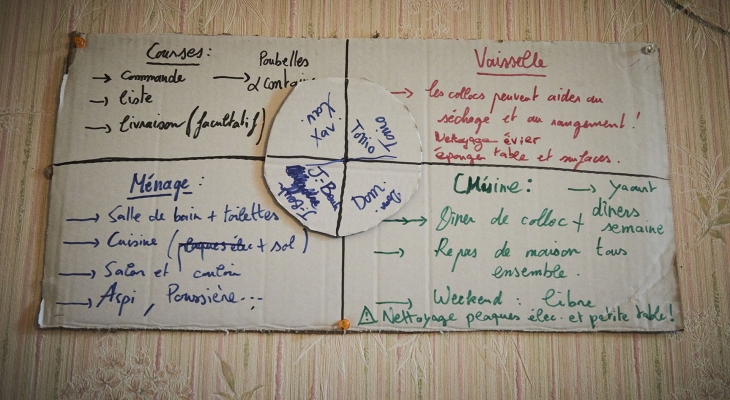 Courses :
→ Commande
→ liste
→ livraison (facultatif)
→ Poubelles
& contain
Vaisselle
→ les collocs peuvent aider au
séchage et au rangement !
Nettoyage évier
éponger table et surfaces.
Xavi
Xavi
Tonio
Tonio
J-Bau
Dom.
Dom.
Ménage :
→ Salle de bain + toilettes
→ Cuisine (plaques élec + sol)
→ Salon et couloir
→ Aspi, Poussière...
Cuisine :
→ Yaourt
→ Dîner de colloc + dîners
semaine
→ Repas de maison tous
ensemble.
→ Weekend : libre
⚠ Nettoyage plaques élec. et petite table !